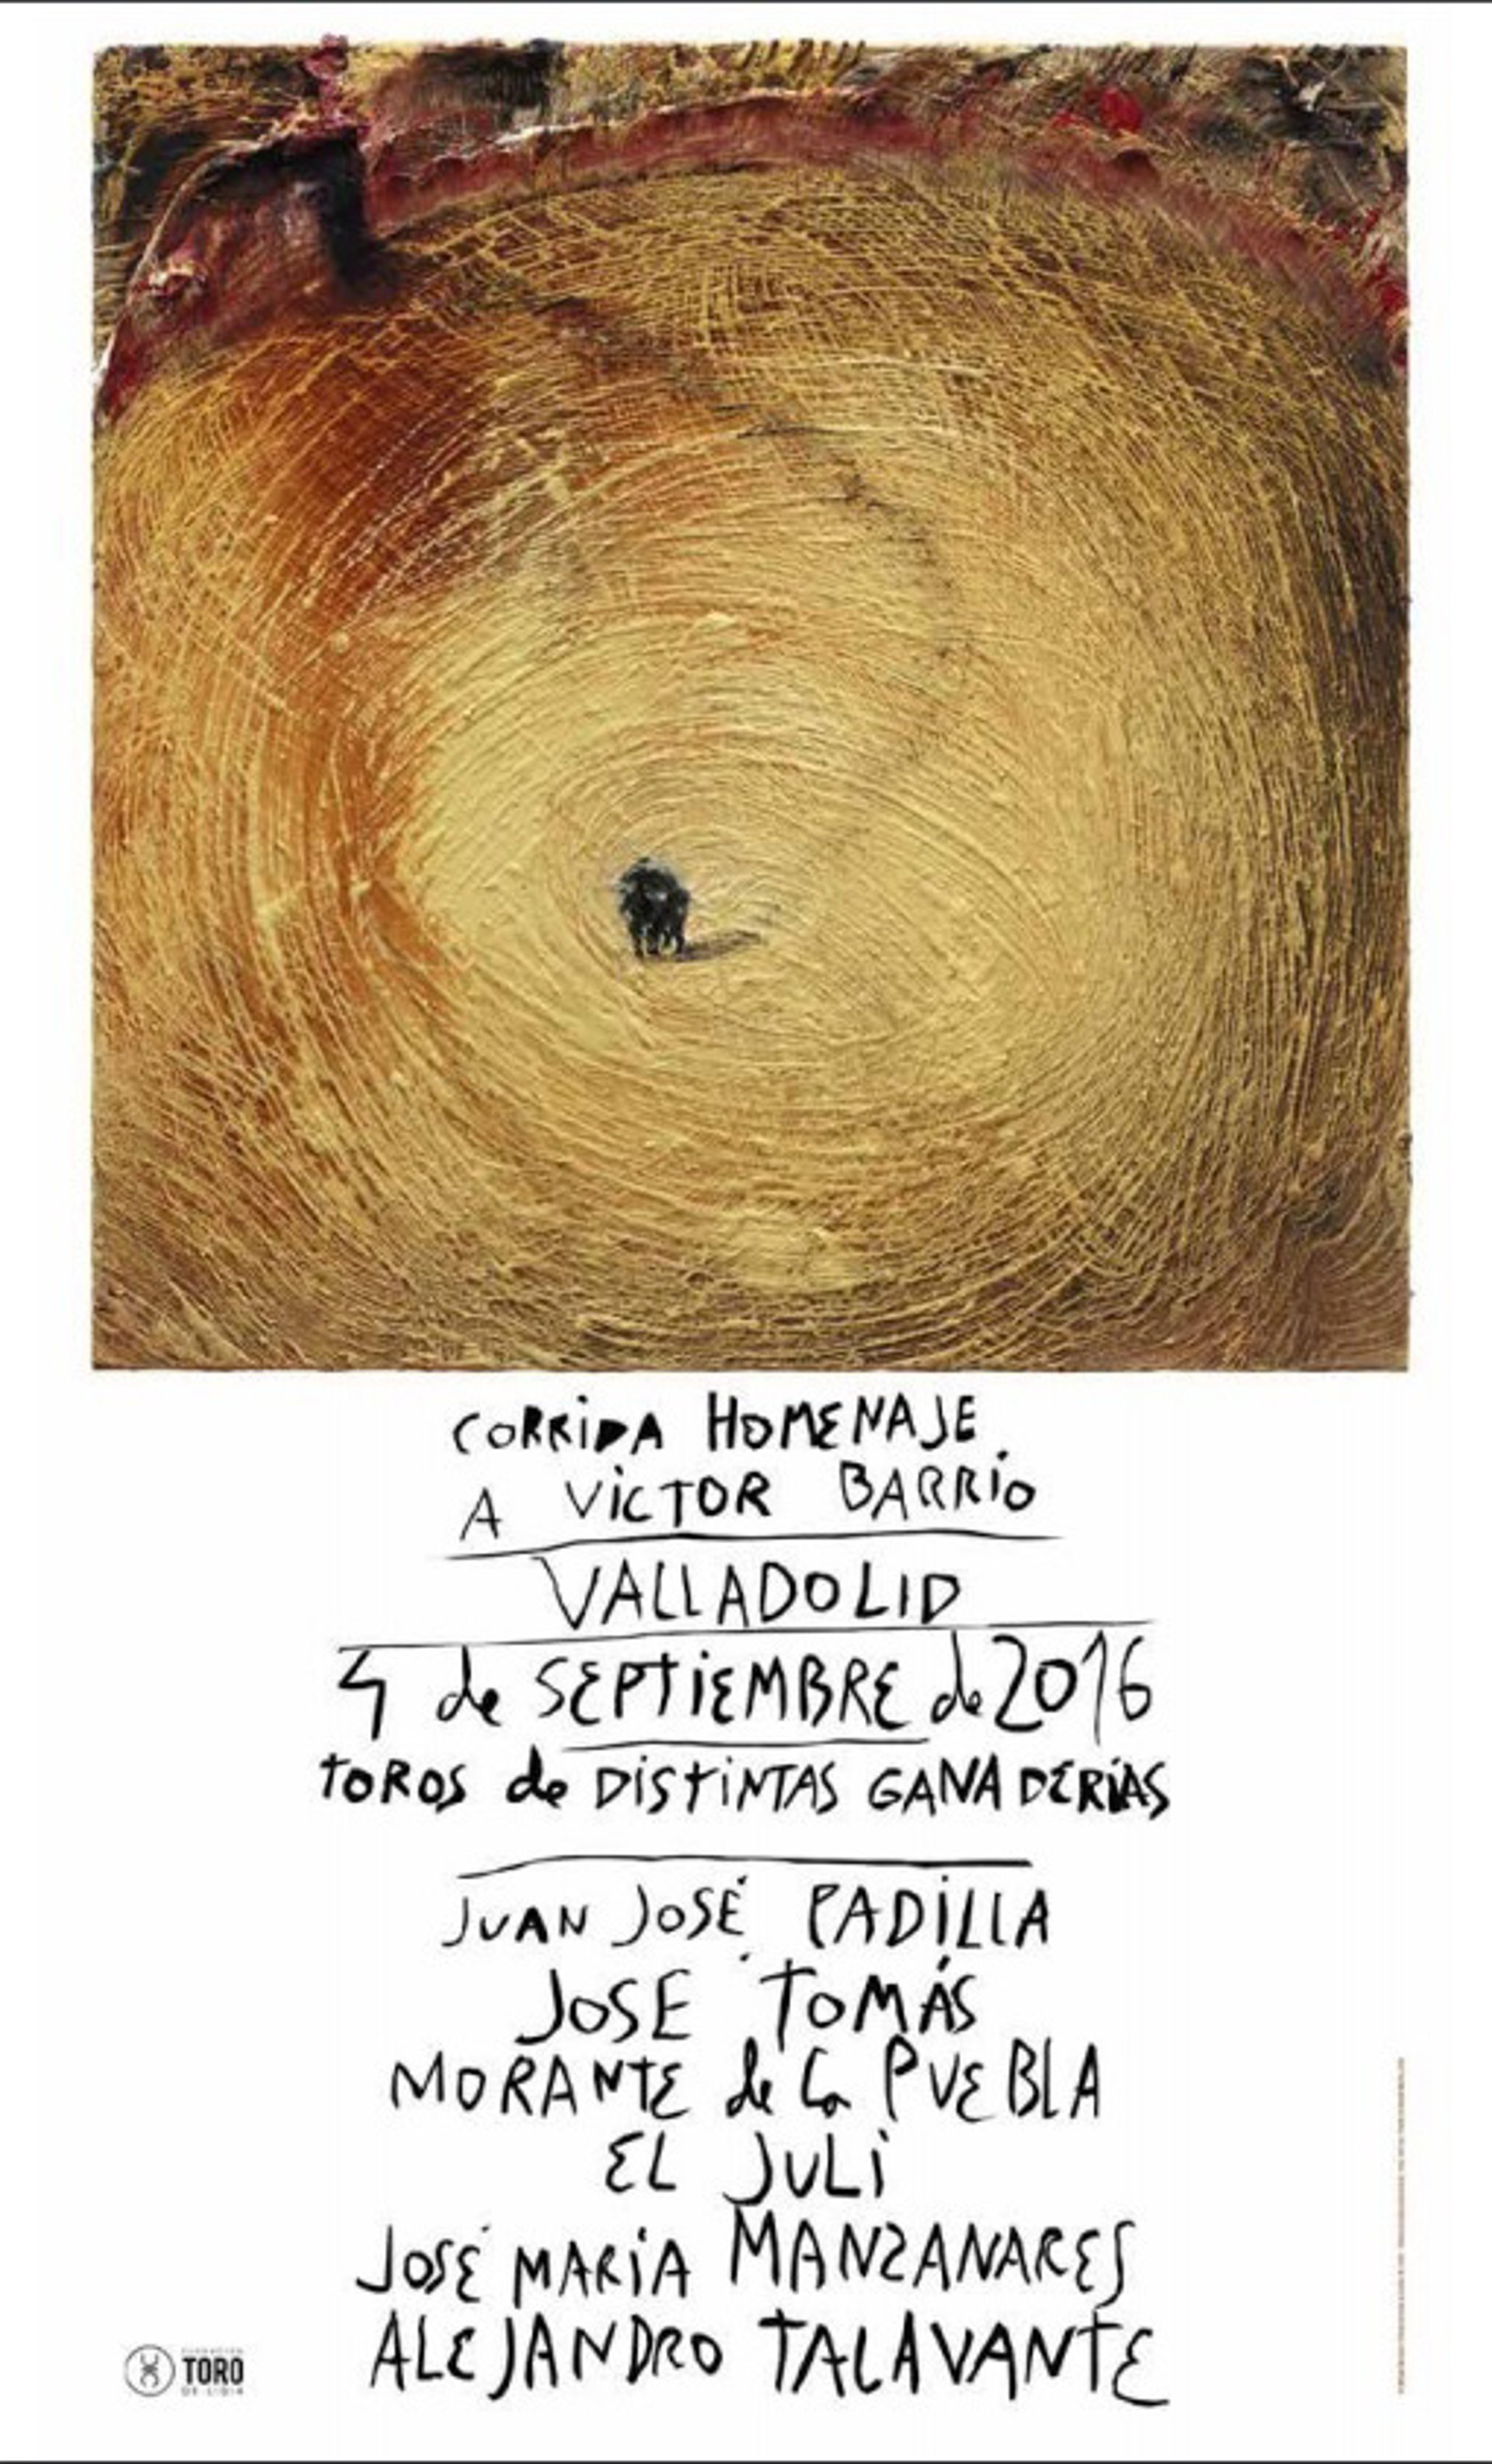 CORRIDA HOMENAJE
A VICTOR BARRIO
VALLADOLID
4 de SEPTIEMBRE de 2016
TOROS de DISTINTAS GANADERÍAS
JUAN JOSÉ PADILLA
JOSE TOMÁS
MORANTE de La PUEBLA
EL JULI
JOSÉ MARIA MANZANARES
ALEJANDRO TALAVANTE
FUNDACIÓN
TORO
DE LIDIA